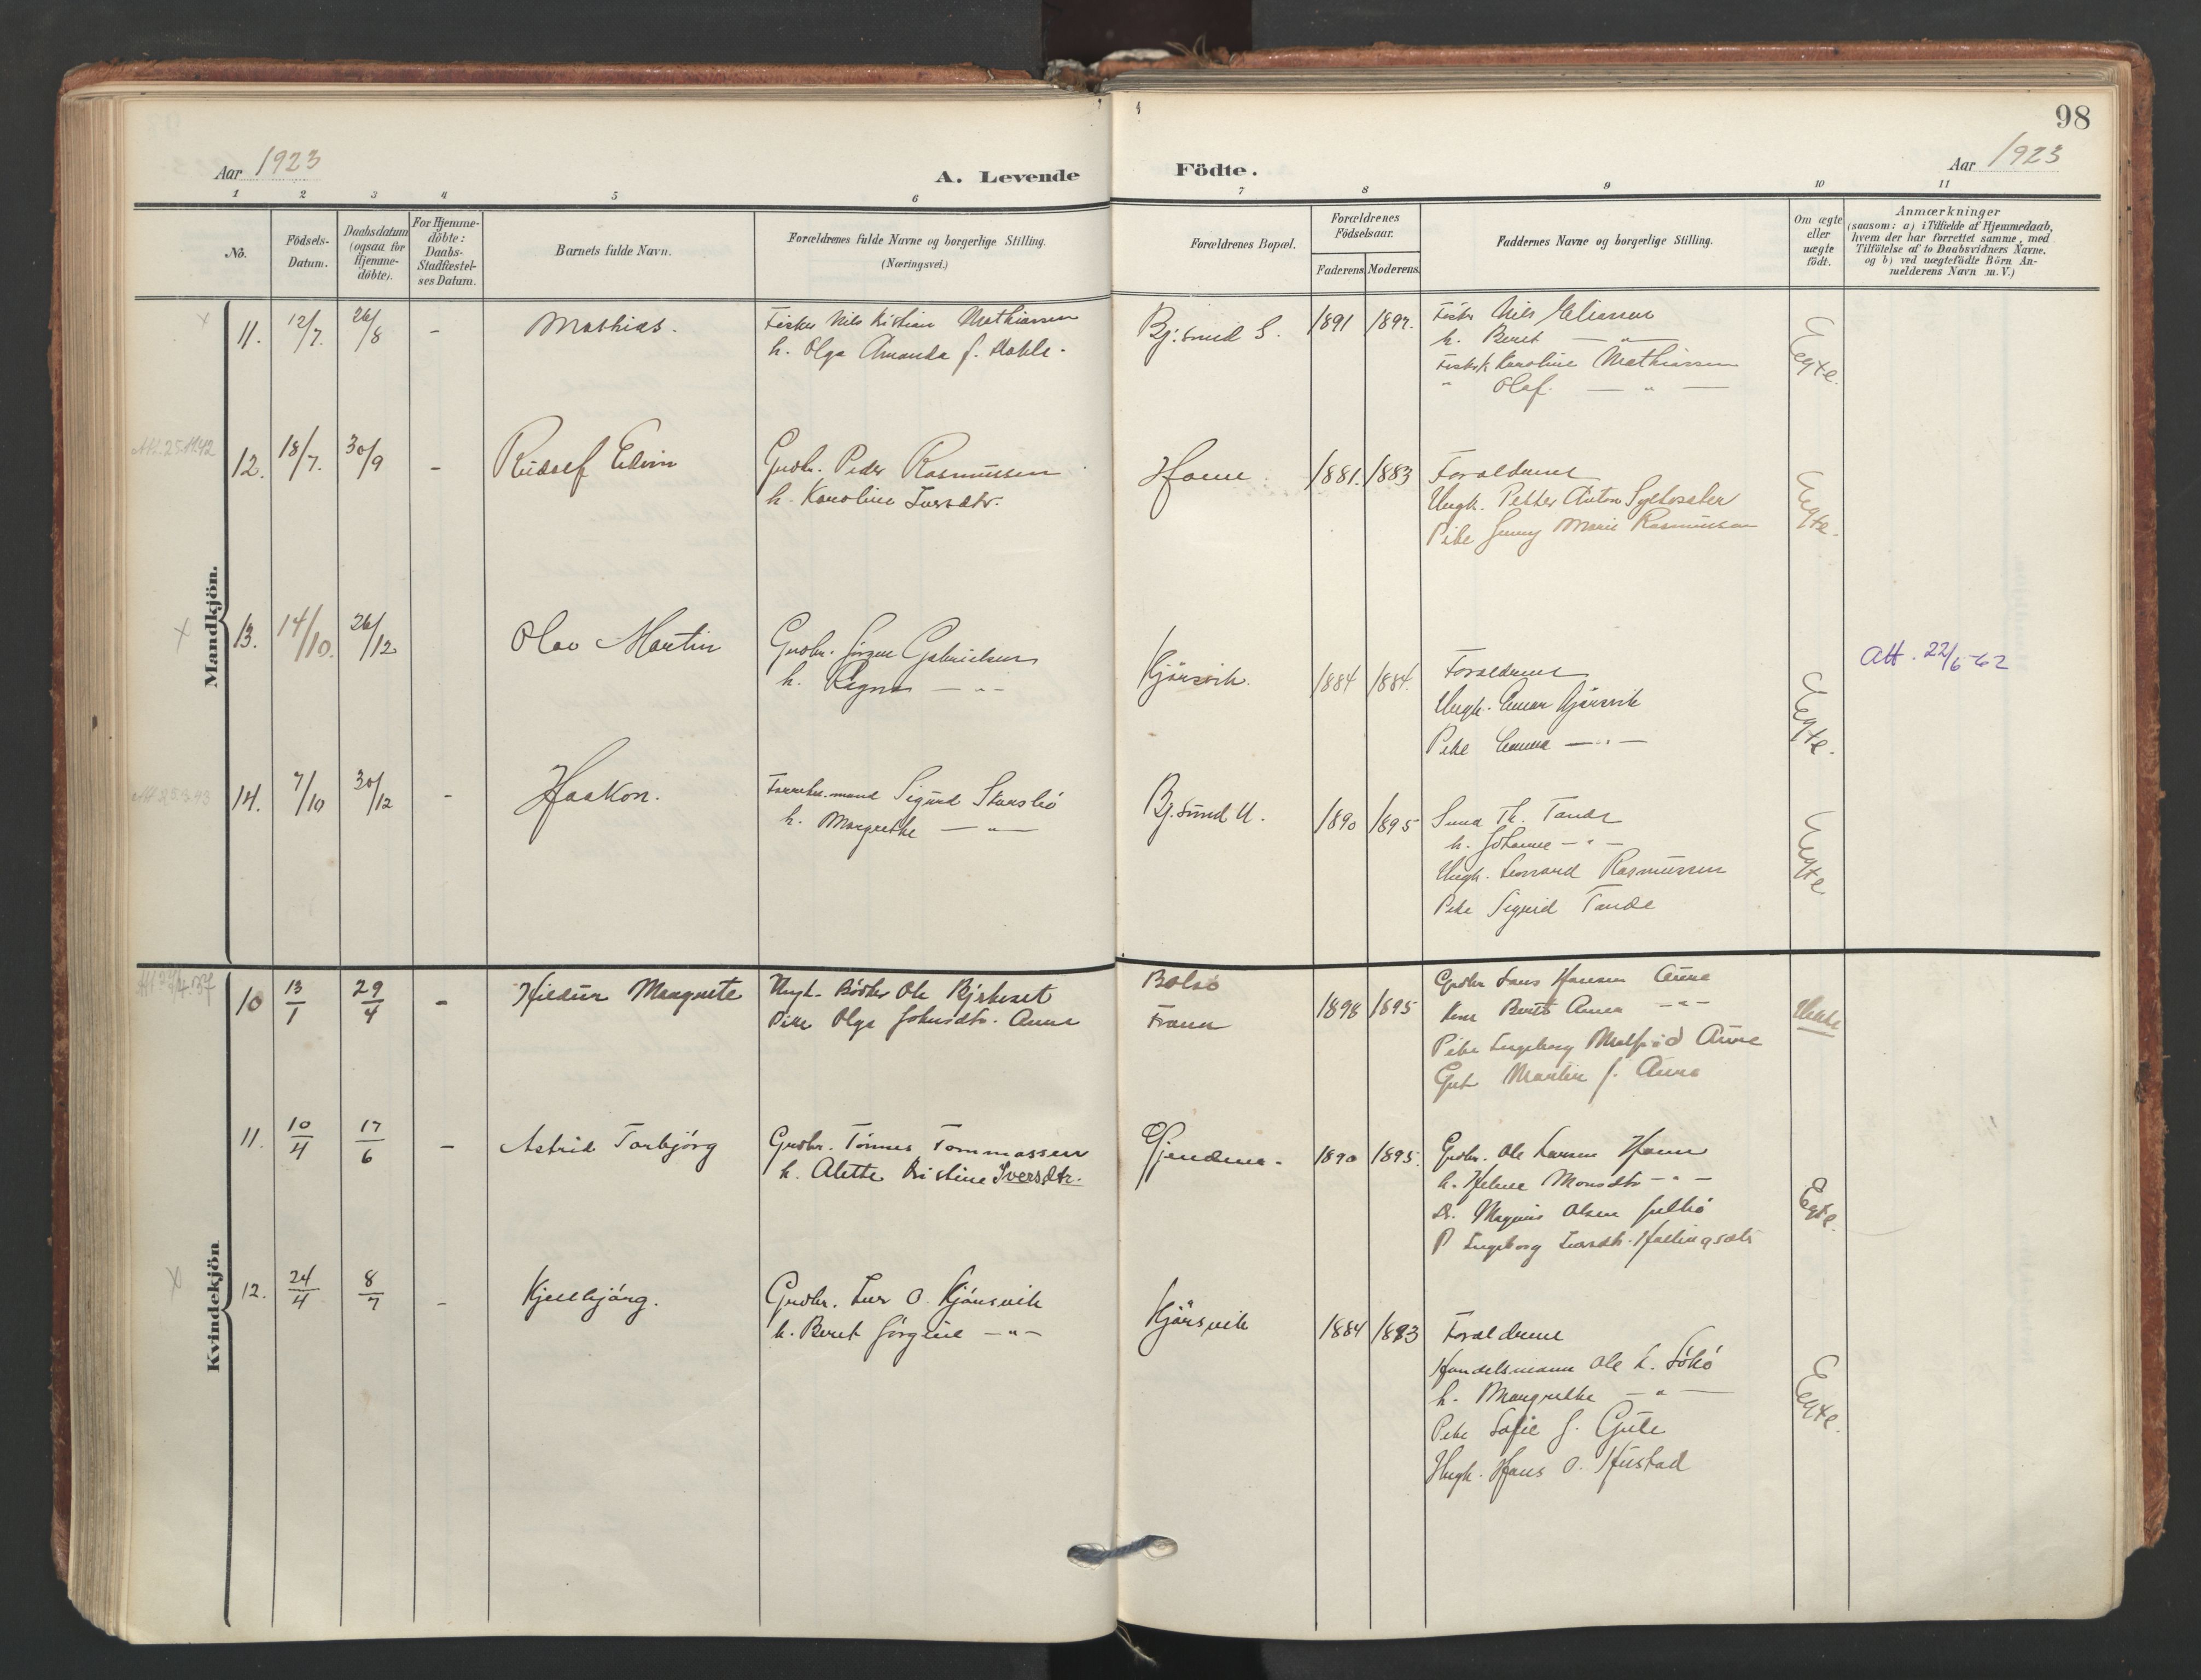 98
Aar 1923
A. Levende Födte.
Aar 1923
1 2 3 4 5 6 7 8 9 10 11
No.
Födsels-Datum.
Daabsdatum (ogsaa for Hjemme-döbte).
For Hjemme-döbte: Daabs-Stadfæstel-ses Datum.
Barnets fulde Navn.
Forældrenes fulde Navne og borgerlige Stilling.
(Næringsvei.)
Forældrenes Bopæl.
Forældrenes Födselsaar.
Faderens Moderens
Faddernes Navne og borgerlige Stilling.
Om ægte eller uægte födt.
Anmærkninger
(saasom: a) i Tilfælde af Hjemmedaab, hvem der har forrettet samme, med Tilföielse af to Daabsvidners Navne, og b) ved uægtefödte Börn An-melderens Navn m. V.)
Mandkjön.
11. 12/7. 26/8 - Mathias.
Fisker Nils Kristian Mathiassen
h. Olga Amanda f.
Bj.sund S. 1891
Fisker Nils Eliassen
h. Beret — " —
Karoline Mathiassen
" Olaf. — " —
Ægte.
12. 18/7. 30/9 - Rudolf Edvin
Grdbr. Peder Rasmussen
h. Karoline Iversdtr.
1881. 1883
Forældrene
Ungk. Petter Anton
Pike Jenny Marie Rasmussen
Ægte.
13. 14/10. 26/12 Olav Martin
Grdbr. Jörgen Gabrielsen
h. Ragna — " —
Kjörsvik. 1884 1884.
Forældrene
Ungk. Einar Kjörsvik
Pike — " —
Ægte.
Att. 22/6-62
14. 7/10 30/12 - Haakon.
Sigurd
h. Margrethe — " —
Bj.sund U. 1890 1895
Th. Tande
h. Johanne — " —
Ungk. Leonard Rasmussen
Pike Sigrid Tande
Ægte
Kvindekjön
10 13/1 29/4 - Hildur Margrete
Ungk. Bödker Ole
Pike Olga Johnsdtr. Aune
Bolsö
Fræna 1898 1895
Grdbr Hansen Aune
Kone Berit Aune — " —
Pike Ingeborg Malfrid Aune
Gut Martin J. Aune
11. 10/4 17/6 - Astrid Torbjörg
Grdbr. Tönnes Tommassen
h. Alette Kristine Iversdtr.
Gjendme. 1890 1895.
Grdbr. Ole Larsen
h. Helene Monsdtr — " —
Magnus Olsen Julbö
P Ingeborg
Egte.
12. 24/4 8/7 - Kjellbjörg.
Grdbr. Iver O. Kjörsvik
h. Beret Jörgine — " —
Kjörsvik 1884 1893
Forældrene
Handelsmann Ole
h. Margrethe — " —
Pike Sofie J. Gule
Ungk. Hans O. Hustad
Ægte.